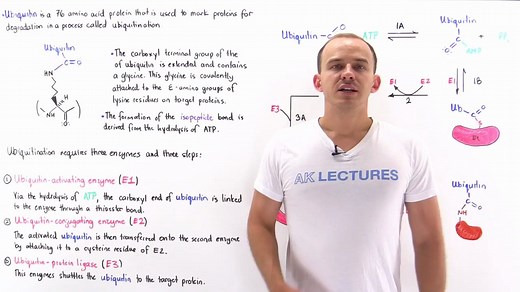 • Ubiquitin is a 76 amino acid protein that is used to mark proteins for
degradation in a process called ubiquitination
Ubiquitin
C=O
HN
H
NH
O
• The carboxyl terminal group of the
of ubiquitin is extended and contains
a glycine. This glycine is covalently
attached to the ε-amino groups of
lysine residues on target proteins.
• The formation of the isopeptide bond is
derived from the hydrolysis of ATP.
Ubiquitination requires three enzymes and three steps:
① Ubiquitin-activating enzyme (E1)
Via the hydrolysis of ATP, the carboxyl end of ubiquitin is linked
to the enzyme through a thioester bond.
② Ubiquitin-conjugating enzyme (E2)
The activated ubiquitin is then transferred onto the second enzyme
by attaching it to a cysteine residue of E2.
③ Ubiquitin-protein ligase (E3)
This enzymes shuttles the ubiquitin to the target protein.
Ubiquitin
C
O
ATP
1A
Ubiquitin
C
O
AMP
PPi
E1
1B
E1
E2
2
E3
3A
Ub
C
O
S
E1
Ubiquitin
C
O
NH
AK LECTURES